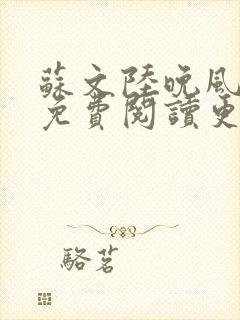 蘇文陸晚風
免費閱讀更
駱茗